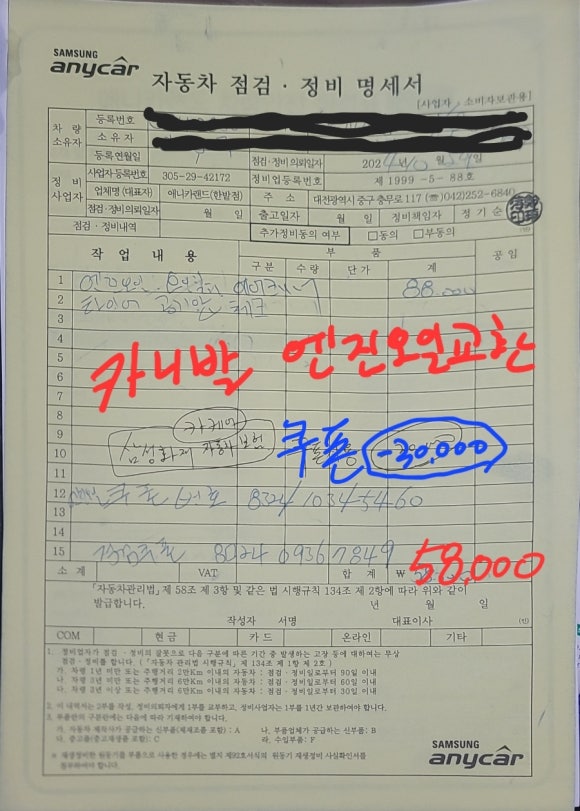 SAMSUNG
anycar
자동차 점검 · 정비 명세서
[사업자 · 소비자보관용]
차량 소유자
등록번호
소유자
등록연월일
점검·정비의뢰일자 2024년 10월
정비 사업자
사업자등록번호 305-29-42172 정비업등록번호 제 1999 -5- 88호
업체명 (대표자) 애니카랜드(한밭점) 주 소 대전광역시 중구 충무로 117 (☎042)252-6840
점검·정비의뢰일자 월 일 출고일자 월 일 정비책임자 정기순
점검·정비내역 추가정비동의 여부 □동의 □부동의
작 업 내 용 부 품 공 임
구 분 수 량 단 가 계
1 엔진오일 오일휠타 에어크리너 88.000
2 타이어 공기압 체크
3
4
카니발 엔진오일교환
5
6
7
8
카케어
9
10 삼성화재 자동차보험 쿠폰 -30,000
11
12 쿠폰 번호 8324 1034 5460
13
14
15 쿠폰 8024 0936 7849
58,000
소 계 VAT 합 계 ₩
「자동차관리법」제 58조 제 3항 및 같은 법 시행규칙 134조 제 2항에 따라 위와 같이
발급합니다. 년 월 일
작성자 서명 대표이사 (인)
COM 현 금 카 드 온라인 기타
1. 정비업자가 점검 · 정비의 잘못으로 다음 구분에 따른 기간 중 발생하는 고장 등에 대하여는 무상
점검 · 정비를 합니다. (「자동차 관리법 시행규칙」제 134조 제 1항 제 2호)
가. 차령 1년 미만 또는 주행거리 2만Km 이내의 자동차 : 점검 · 정비일로부터 90일 이내
나. 차령 3년 미만 또는 주행거리 6만Km 이내의 자동차 : 점검 · 정비일로부터 60일 이내
다. 차령 3년 이상 또는 주행거리 6만Km 이상의 자동차 : 점검 · 정비일로부터 30일 이내
2. 이 내역서는 2부를 작성, 정비의뢰자에게 1부를 교부하고, 정비사업자는 1부를 1년간 보관하여야 합니다.
3. 부품란의 구분란에는 다음에 따라 기재하여야 합니다.
가. 자동차 제작사가 공급하는 신부품(재제조품 포함) : A 나. 부품업체가 공급하는 신부품 : B
다. 중고품(중고재생품 포함) : C 라. 수입부품 : F
※ 재생정비한 원동기를 부품으로 사용한 경우에는 별지 제92호서식의 원동기 재생정비 사실확인서를
첨부하여야 합니다.
SAMSUNG
anycar